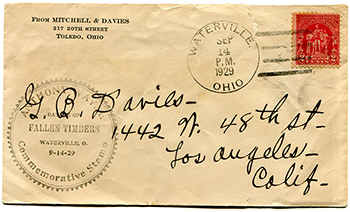 From Mitchell & Davies
317 20th Street
Toledo, Ohio
WATERVILLE.
SEP
14
P.M.
1929
OHIO
2
G. B. Davies-
1442 W. 48th st-
Los Angeles-
Calif-
FALLEN TIMBERS
WATERVILLE, O.
9-14-29
Commemorative Stamp